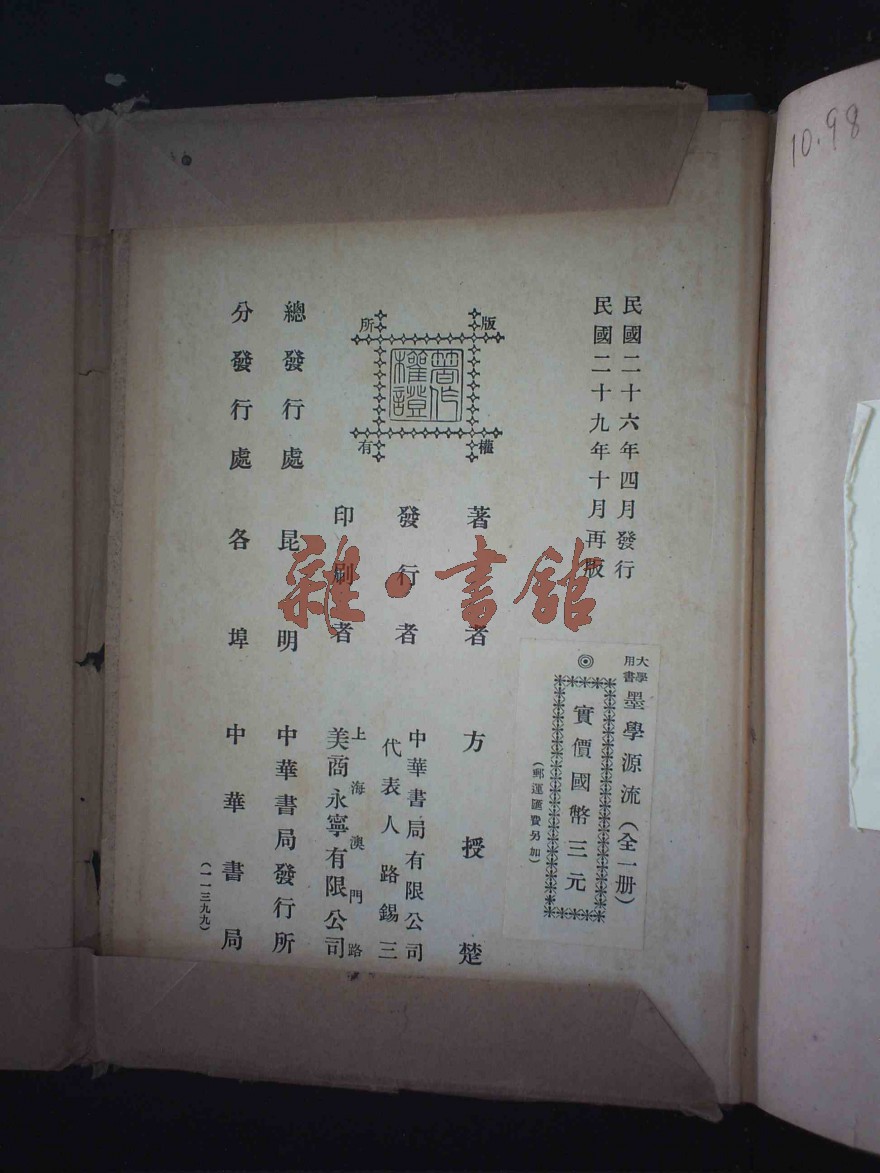 民國二十六年四月發行
民國二十九年十月再版
大學用書 墨學源流（全一册）
◎實價國幣三元
（郵運匯費另加）
版權所有
著作權證
著者 方授楚
發行者 中華書局有限公司
代表人路錫三
印刷者 上海澳門路
美商永寧有限公司
總發行處 昆明 中華書局發行所
分發行處 各埠 中華書局
（一一三九九）
雜·書館
10.98